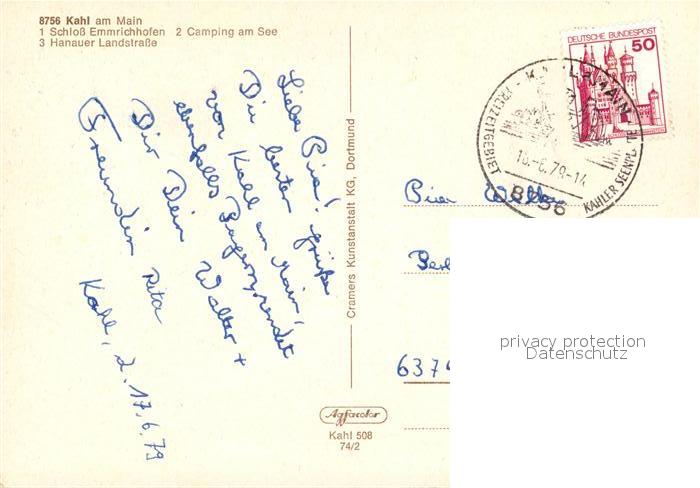 8756 Kahl am Main
1 Schloß Emmrichhofen 2 Camping am See
3 Hanauer Landstraße
Liebe Pia!
Die besten Grüße
von Kahl am Main,
ebenfalls Bayern, sendet
Dir Dein Walter +
Freundin Rita
Kahl, d. 17.6.79
Cramers Kunstanstalt KG, Dortmund
DEUTSCHE BUNDESPOST
50
FREIZEITGEBIET
KAHLER SEENPL
-6.79-14
8756
Pia
637
Agfacolor
Kahl 508
74/2
privacy protection
Datenschutz